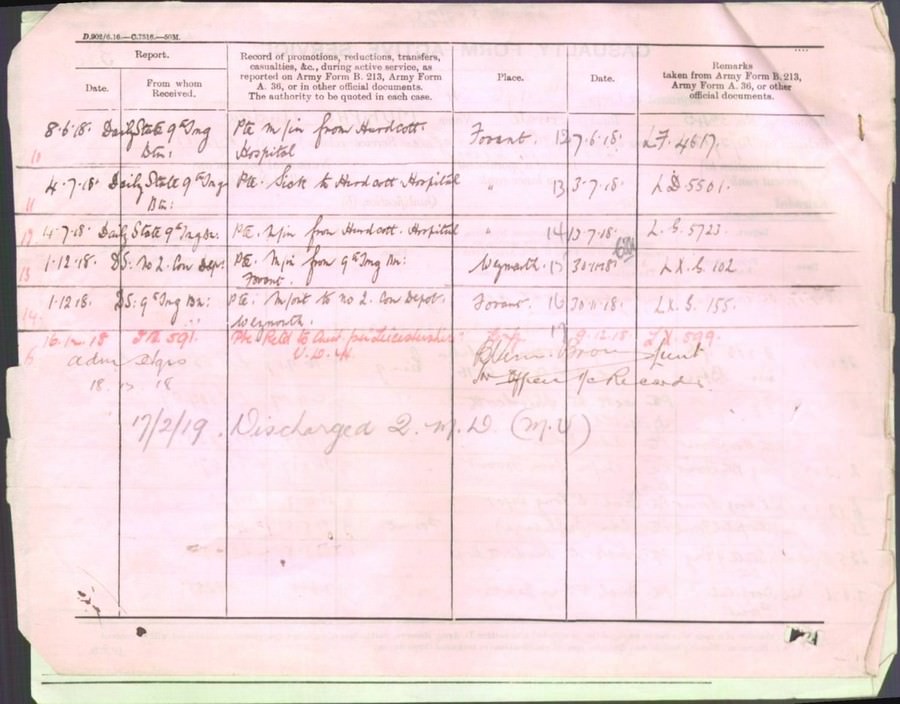 D.902/6.16.—C.7516.—50M.
Report.
Date.
From whom Received.
Record of promotions, reductions, transfers,
casualties, &c., during active service, as
reported on Army Form B. 213, Army Form
A. 36, or in other official documents.
The authority to be quoted in each case.
Place.
Date.
Remarks
taken from Army Form B. 213,
Army Form A. 36, or other
official documents.
8.6.18. Daily State 9th Tng Pte m/in from Hurdcott. Fovant. 12 7.6.18. L F. 4617.
11 Btn: Hospital
4.7.18. Daily State 9th Tng Pte. Sick to Hurdcott Hospital " 13 3.7.18. L D. 5501.
11 Btn:
4.7.18 Daily State 9th Tng Bn. Pte. m/in from Hurdcott. Hospital " 14 13.7.18. L. G. 5723.
1.12.18. DS: No 2. Con Depot: Pte. m/in from 9th Tng Bn: Weymouth. LX. G. 102
13 Fovant.
1.12.18. DS: 9th Tng Bn: Pte. m/out to No 2. Con Depot. Fovant. 16 30.11.18. LX. G. 155.
14 Weymouth.
16.12.18 Pte Retd to Aust. per Leicestershire 17 9.12.18 LX. 599.
6 Adm Hqrs
18 12 18
for Officer i/c Records.
17/2/19. Discharged 2. M. D. (M.U)